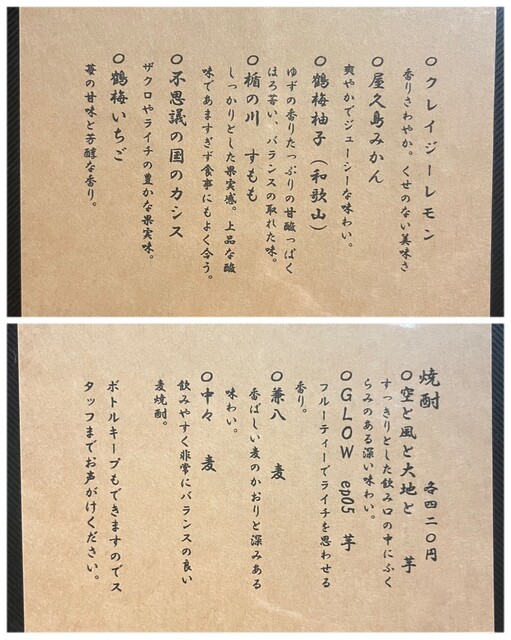 ○クレイジーレモン
香りさわやか。くせのない美味さ
○屋久島みかん
爽やかでジューシーな味わい。
○鶴梅柚子（和歌山）
ゆずの香りたっぷりの甘酸っぱく
ほろ苦い、バランスの取れた味。
○楯の川　すもも
しっかりとした果実感。上品な酸
味であますぎず食事にもよく合う。
○不思議の国のカシス
ザクロやライチの豊かな果実味。
○鶴梅いちご
苺の甘味と芳醇な香り。
焼酎　　各四二〇円
○空と風と大地と　芋
すっきりとした飲み口の中にふく
らみのある深い味わい。
○GLOW ep05　芋
フルーティーでライチを思わせる
香り。
○兼八　麦
香ばしい麦のかおりと深みある
味わい。
○中々　麦
飲みやすく非常にバランスの良い
麦焼酎。
ボトルキープもできますのでス
タッフまでお声がけください。